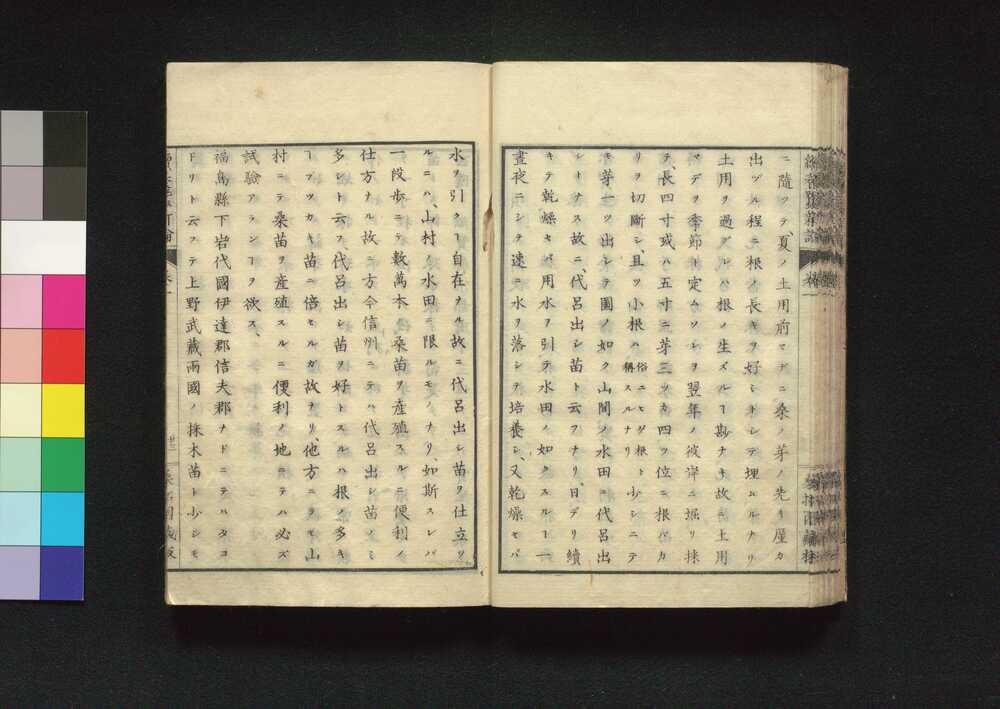 ニ隨ツテ、夏ノ土用前マデニ桑ノ芽ノ先キ屋カ
出ヅル程ニ根ノ長キヲ好シトシテ埋ムルナリ
土用ヲ過グレハ根ノ生ズルヿ尠ナキ故ニ土用
マデヲ季節ト定ムツレヲ翌年ノ彼岸ニ堀リ採
テ、長四寸或ハ五寸ニ芽三ツカ四ツ位ニ根バカ
リヲ切斷シ、且ツ小根ハ俗ニヒゲ根ト稱スルナリ少シニテ
モ芽一ツ出シテ圖ノ如ク山間ノ水田ニ代呂出
シトナス故ニ、代呂出シ苗ト云フナリ、日デリ續
キテ乾燥セバ用水ヲ引テ水田ノ如クスルヿ一
晝夜ニシテ速ニ水ヲ落シテ培養シ、又乾燥セバ
水ヲ引クヿ自在ナル故ニ代呂出シ苗ヲ仕立ツ
ルニハ、山村ノ水田ニ限ルモノナリ、如斯スレバ
一段歩ニテ數萬本ノ桑苗ヲ産殖スルニ便利ノ
仕方ナル故ニ方今信州ニテハ代呂出シ苗ノミ
多シト云フ、代呂出シ苗ヲ好トスルハ根ノ多キ
ヿフツカキ苗ニ倍セルガ故ナリ、他方ニテモ山
村ニテ桑苗ヲ産殖スルニ便利ノ地ニテハ必ズ
試驗アランヿヲ欲ス、
福島縣下岩代國伊達郡信夫郡ナドニテハタコ
ドリト云フテ上野武藏兩國ノ採木苗ト少シモ